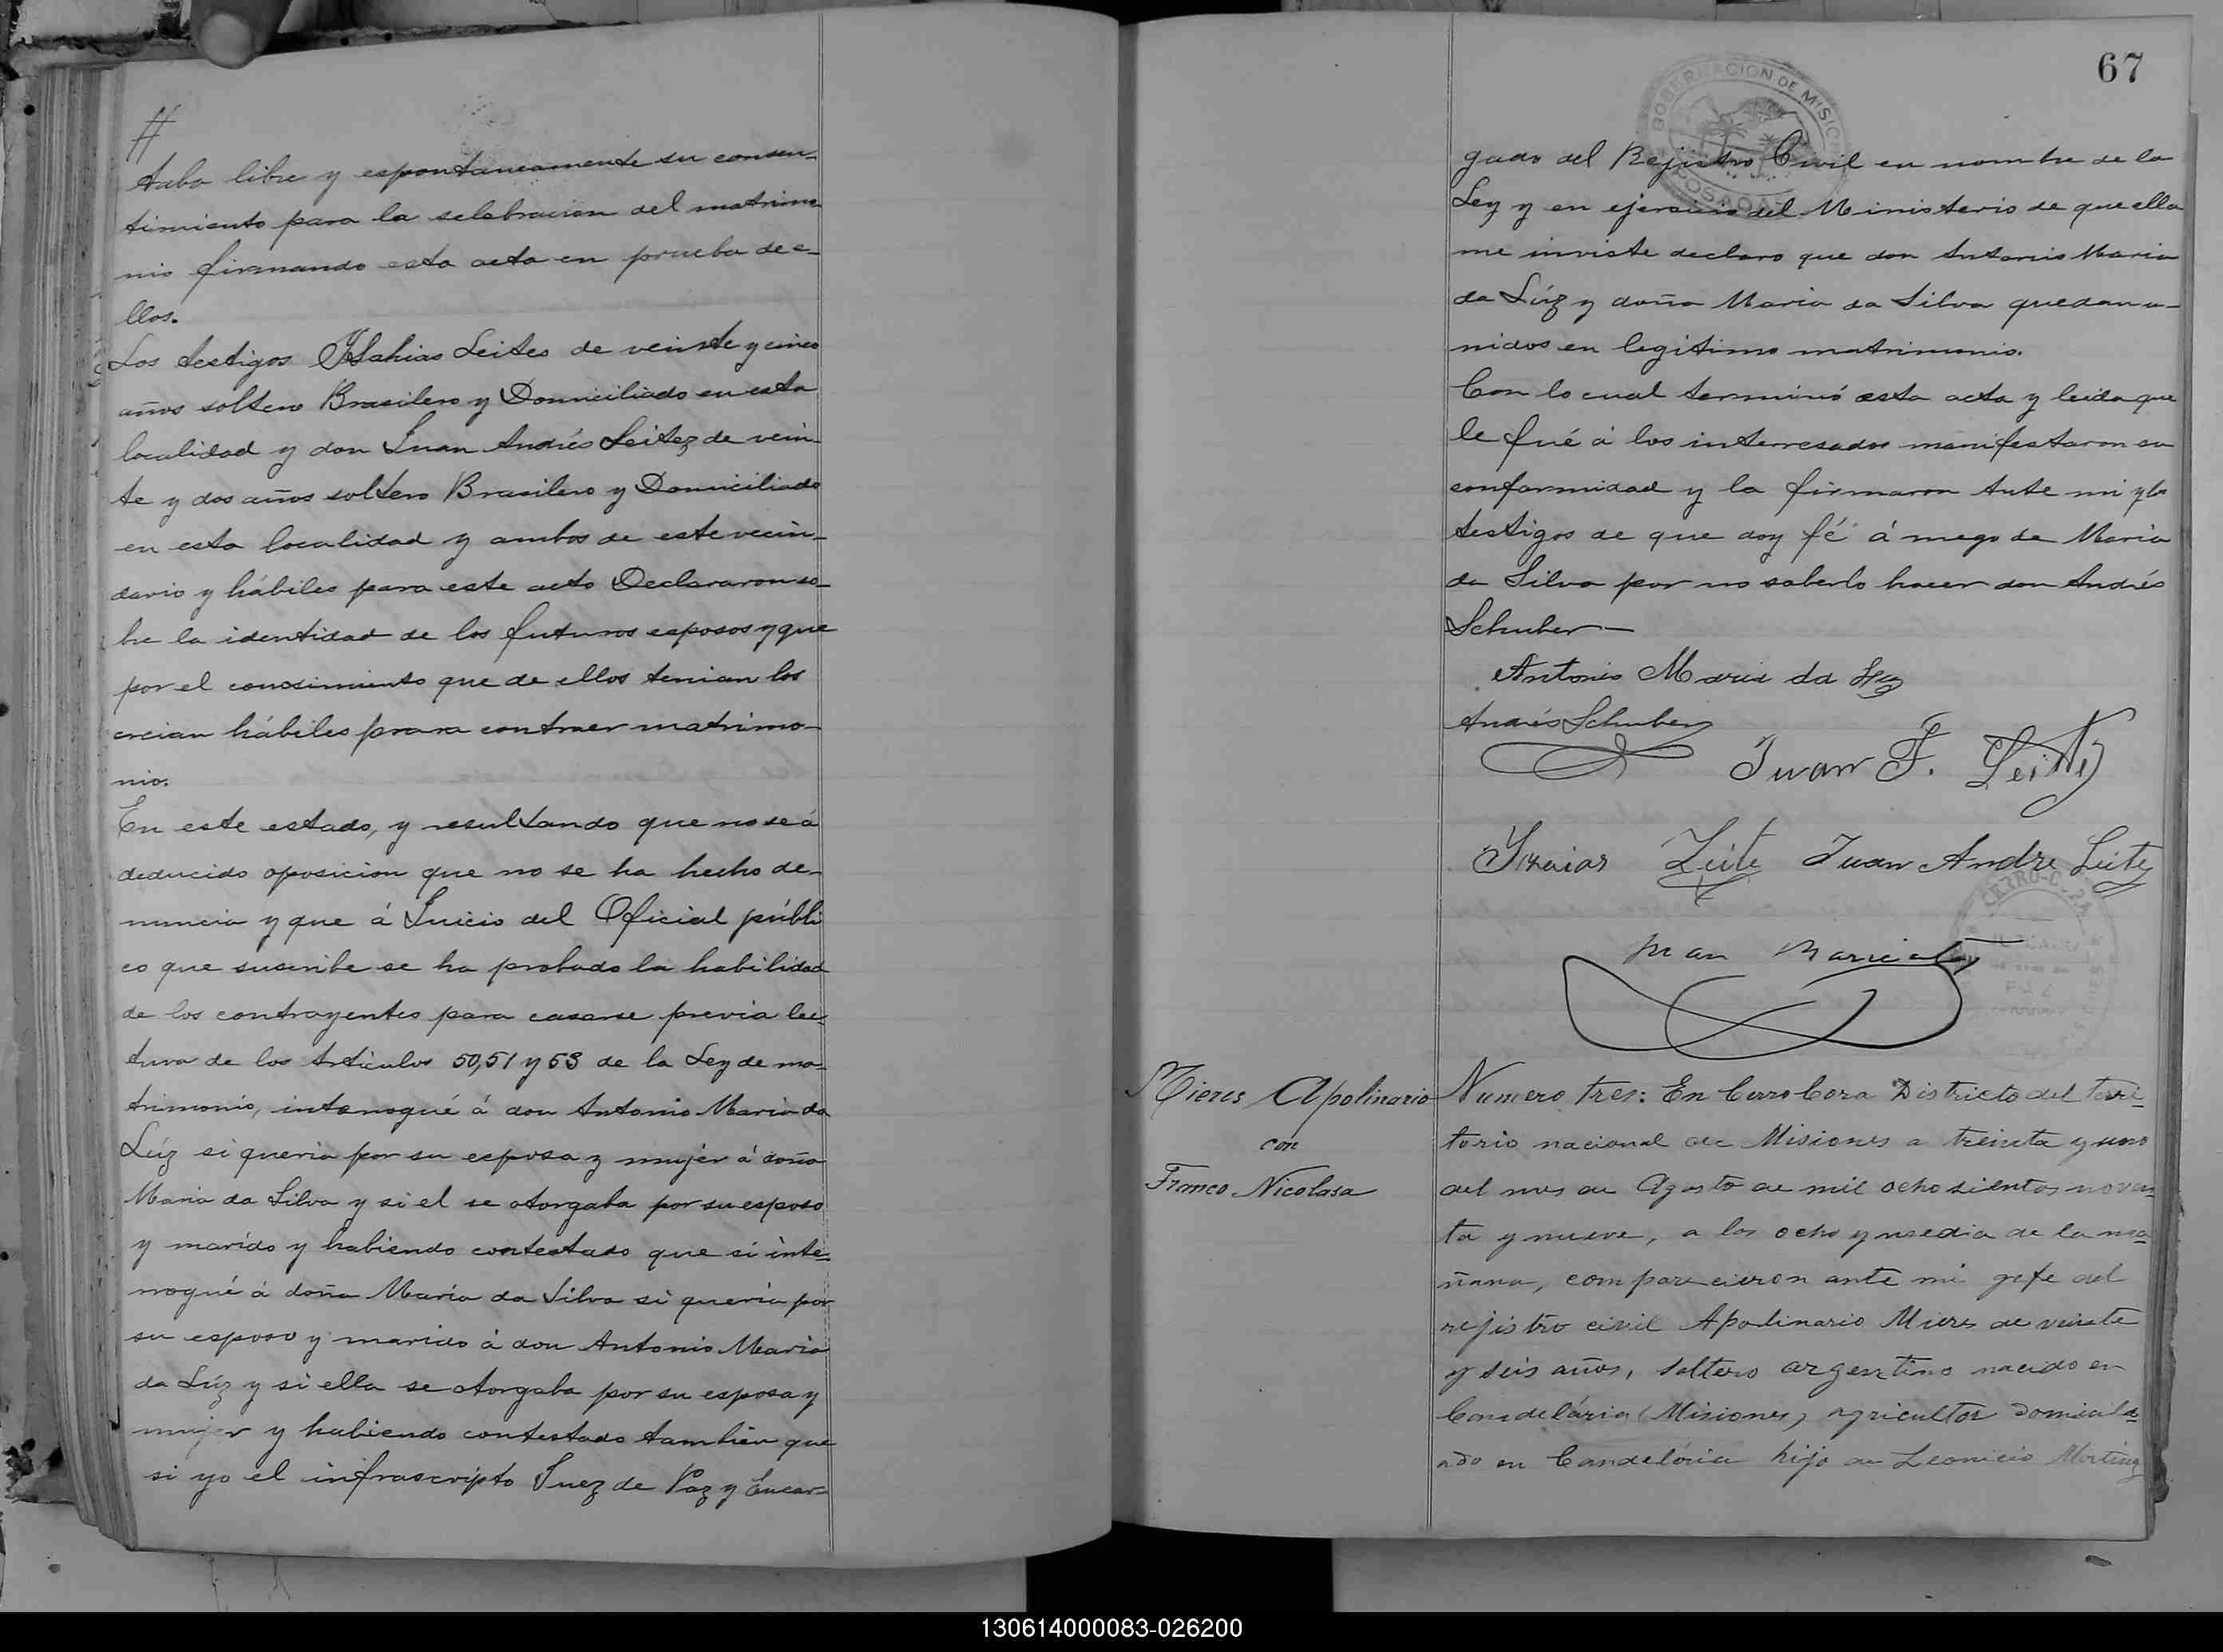 #
taba libre y espontaneamente su consen-
timiento para la selebracion del matrimo
nio firmando esta acta en prueba de e-
llos.
Los testigos Ysahias Leites de veinte y cinco
años soltero Brasilero y Domiciliado en esta
localidad y don Juan Andrés Leitez de vein-
te y dos años soltero Brasilero y Domiciliado
en esta localidad y ambos de este vecin-
dario y hábiles para este acto Declararon so-
bre la identidad de los futuros esposos y que
por el conosimiento que de ellos tenian los
creian hábiles para contraer matrimo-
nio.
En este estado, y resultando que no se á
deducido oposicion que no se ha hecho de-
nuncia y que á Juicio del Oficial públi
co que suscribe se ha probado la habilidad
de los contrayentes para casarse previa lec-
tura de los Artículos 50,51 y 53 de la Ley de ma-
trimonio, interrogué á don Antonio Maria da
Lúz si queria por su esposa y mujer á doña
Maria da Silva y si el se otorgaba por su esposo
y marido y habiendo contestado que si inte-
rrogué á doña Maria da Silva si queria por
su esposo y marido á don Antonio Maria
da Lúz y si ella se otorgaba por su esposa y
mujer y habiendo contestado tambien que
si yo el infrascripto Juez de Paz y Encar-
67
GOBERNACION DE MISIO
POSADAS
gado del Rejistro Civil en nombre de la
Ley y en ejercicio del Ministerio de que ella
me inviste declaro que don Antonio Maria
da Lúz y doña Maria da Silva quedan u-
nidos en legitimo matrimonio.
Con lo cual terminó esta acta y leida que
le fué á los interresados manifestaron su
conformidad y la firmaron Ante mi y los
testigos de que doy fé á ruego de Maria
da Silva por no saberlo hacer don Andrés
Schuber—
Antonio Maria da Luz
Andrés Schuber
Juan F. Leites
Yzaias Leite Juan Andre Leite
CERRO-C
Juan
Mieres Apolinario
con
Franco Nicolasa
Numero tres: En Cerro Cora Districto del terri-
torio nacional de Misiones a treinta y uno
del mes de Agosto de mil ocho sientos noven-
ta y nueve, a las ocho y media de la ma-
ñana, comparecieron ante mi gefe del
rejistro civil Apolinario Mieres de veinte
y seis años, soltero argentino nacido en
Candelária (Misiones) agricultor domicili-
ado en Candelária hijo de Leonicio Martinez
130614000083-026200